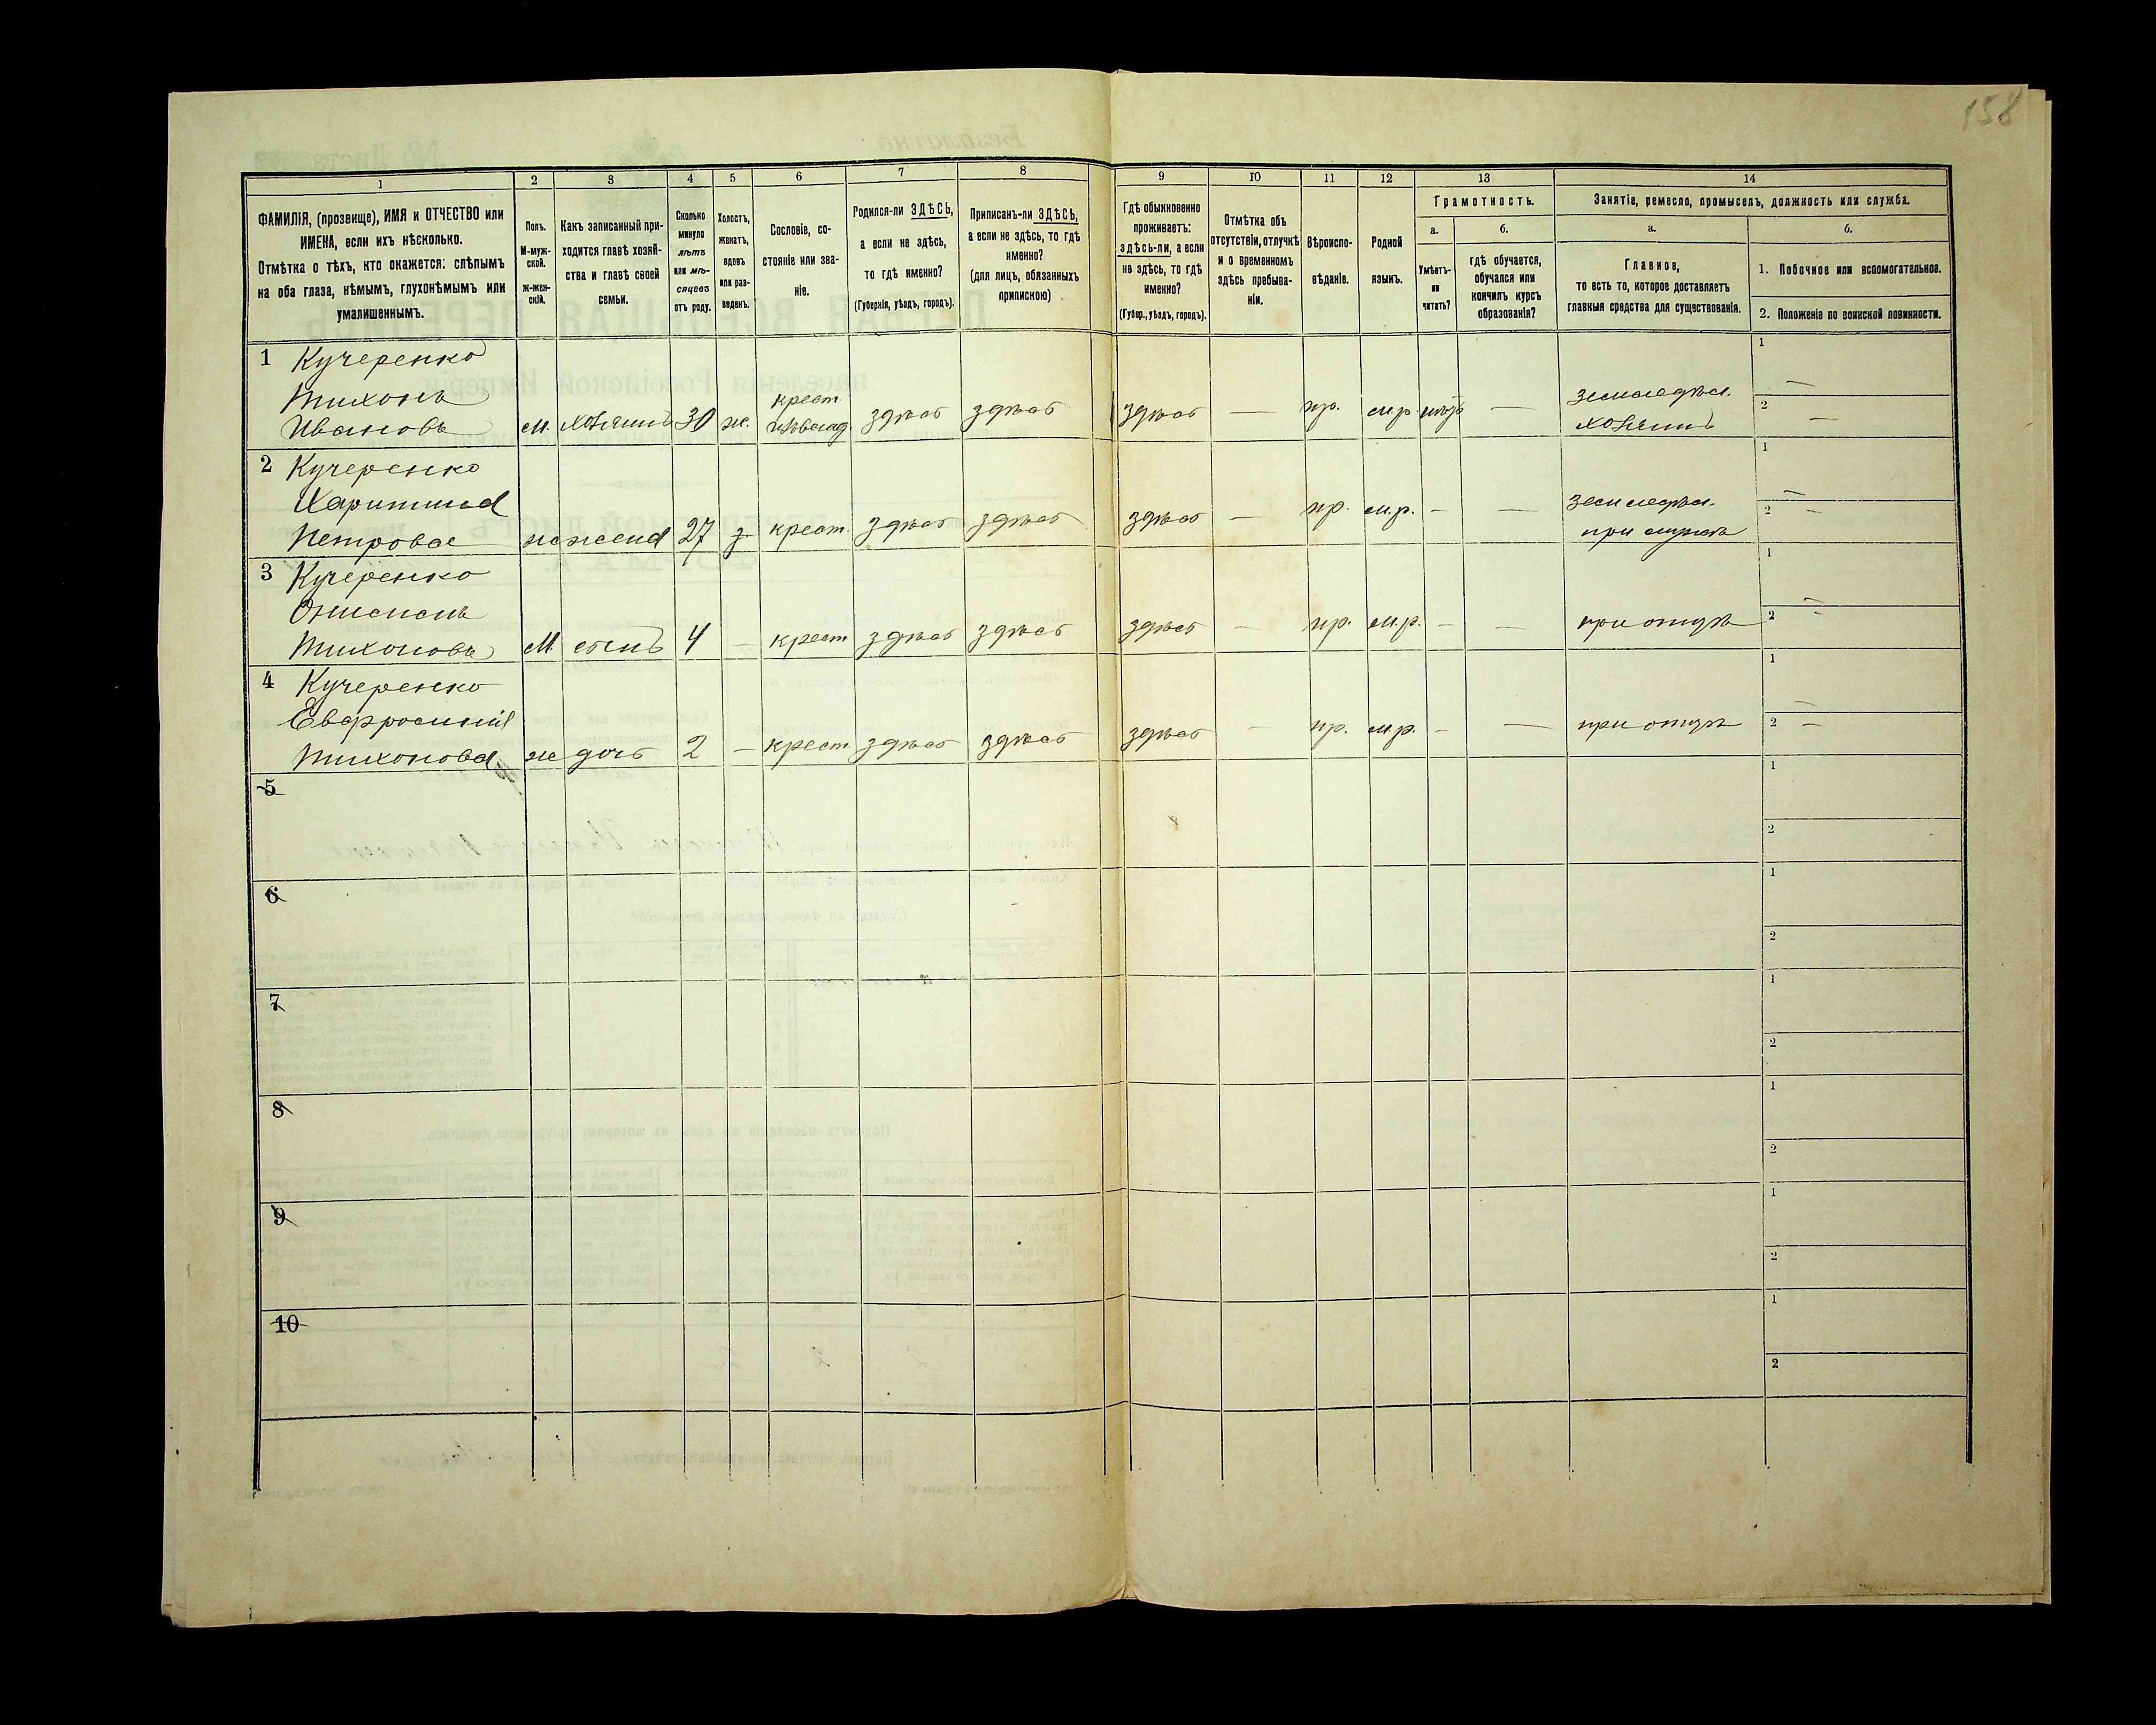 158
1
2
3
4
5
6
7
8
9
10
11
12
13
14
ФАМИЛІЯ, (прозвище), ИМЯ и ОТЧЕСТВО или
ИМЕНА, если ихъ нѣсколько.
Отмѣтка о тѣхъ, кто окажется: слѣпымъ
на оба глаза, нѣмымъ, глухонѣмымъ или
умалишеннымъ.
Полъ.
М-муж-
ской.
ж-жен-
скій.
Какъ записанный при-
ходится главѣ хозяй-
ства и главѣ своей
семьи.
Сколько
минуло
лѣтъ
или мѣ-
сяцевъ
отъ роду.
Холостъ,
женатъ,
вдовъ
или раз-
веденъ.
Сословіе, со-
стояніе или зва-
ніе.
Родился-ли ЗДѢСЬ,
а если не здѣсь,
то гдѣ именно?
(Губернія, уѣздъ, городъ).
Приписанъ-ли ЗДѢСЬ,
а если не здѣсь, то гдѣ
именно?
(для лицъ, обязанныхъ
припискою)
Гдѣ обыкновенно
проживаетъ:
здѣсь-ли, а если
не здѣсь, то гдѣ
именно?
(Губер., уѣздъ, городъ).
Отмѣтка объ
отсутствіи, отлучкѣ
и о временномъ
здѣсь пребыва-
ніи.
Вѣроиспо-
вѣданіе.
Родной
языкъ.
Грамотность.
а.
Умѣетъ-
ли
читать?
б.
гдѣ обучается,
обучался или
кончилъ курсъ
образованія?
Занятіе, ремесло, промыселъ, должность или служба.
а.
Главное,
то есть то, которое доставляетъ
главныя средства для существованія.
б.
1. Побочное или вспомогательное.
2. Положеніе по воинской повинности.
1 Кучеренко
Тихонъ
Ивановъ м. хозяинъ 30 ж. крест. здѣсь здѣсь здѣсь — пр. м.р. — земледѣл.
хозяинъ
1 —
2 —
2 Кучеренко
Харитина
Петрова ж жена 27 з крест. здѣсь здѣсь здѣсь — пр. м.р. — — земледѣл.
при мужѣ
1 —
2 —
3 Кучеренко
Онисимъ
Тихоновъ М сынъ 4 — крест здѣсь здѣсь здѣсь — пр. м.р. — — при отцѣ
1 —
2 —
4 Кучеренко
Тихонова ж дочь 2 — крест. здѣсь здѣсь здѣсь — пр. м.р. — — при отцѣ
1 —
2 —
5
1
2
6
1
2
7
1
2
8
1
2
9
1
2
10
1
2